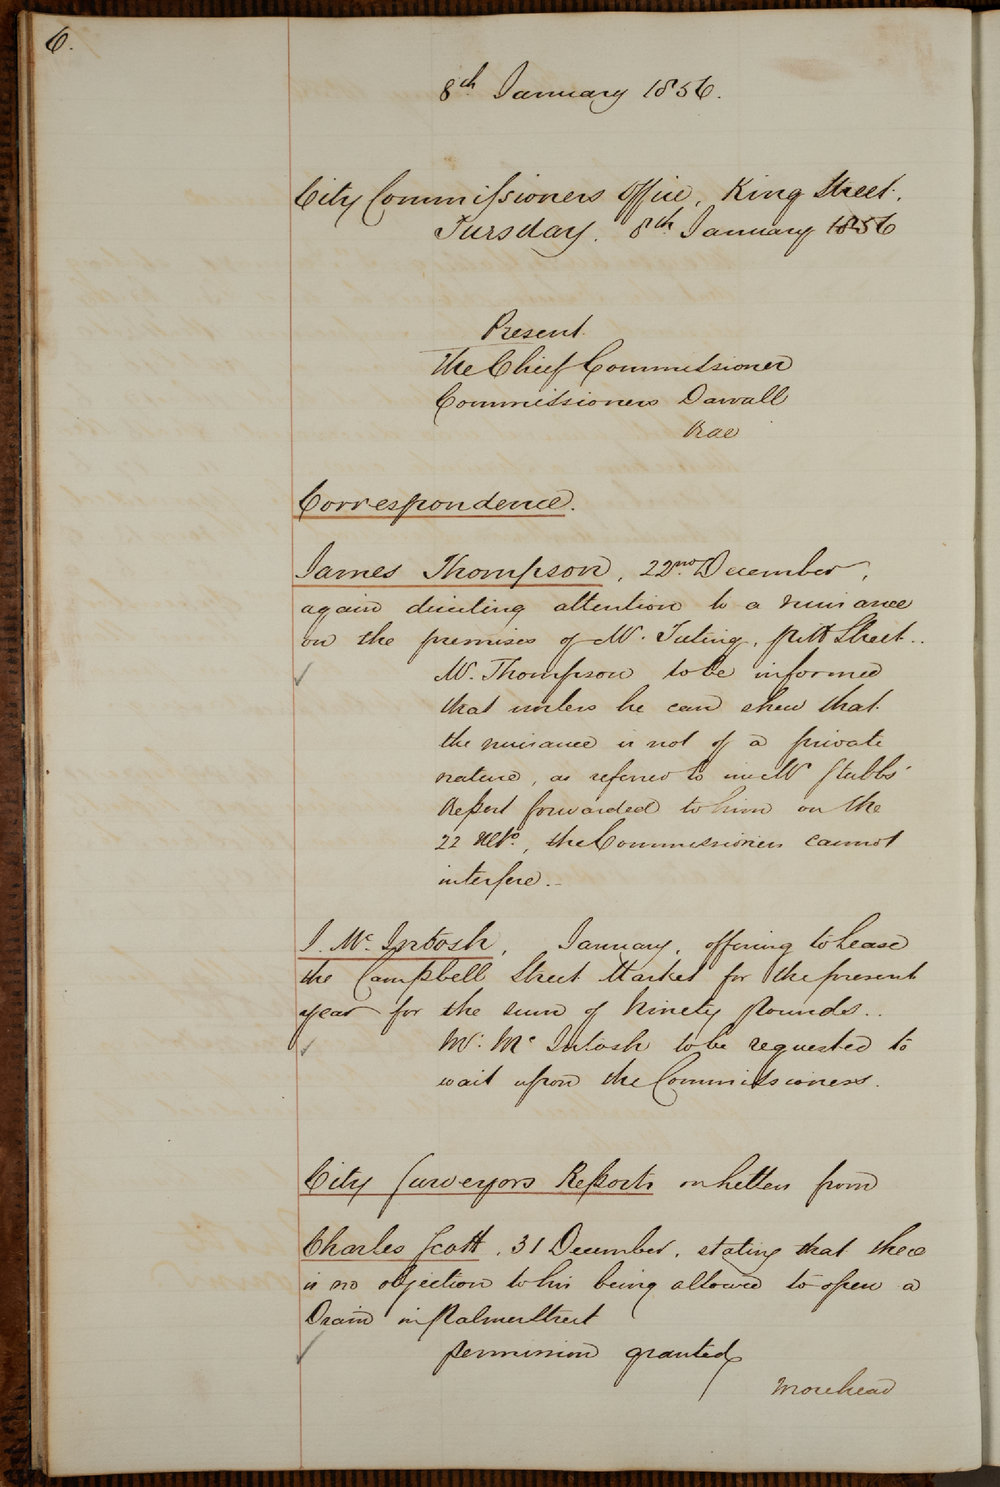 6.
8th January 1856.
City Commissioners Office, King Street.
Tuesday. 8th January 1856
Present.
The Chief Commissioner
Commissioners Darvall
Rae
Correspondence.
James Thompson, 22nd December,
again directing attention to a nuisance
on the premises of Mr. Tuting, Pitt Street..
Mr. Thompson to be informed
that unless he can shew that
the nuisance is not of a private
nature, as referred to in Mr Stubbs'
Report forwarded to him on the
22 Ulto., the Commissioners cannot
interfere.-
J. Mc. Intosh, January, offering to Lease
the Campbell Street Market for the present
year for the sum of Ninety Pounds..
Mr. Mc Intosh to be requested to
wait upon the Commissioners.
City Surveyors Reports on Letters from
Charles Scott, 31 December, stating that there
is no objection to his being allowed to open a
Drain in Palmer Street
Permission granted
Morehead